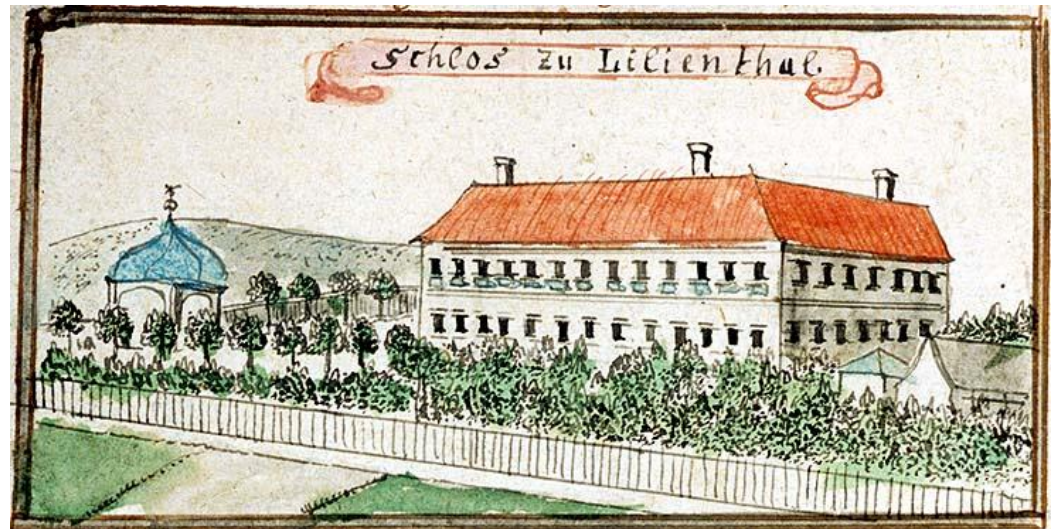 Schlos zu Lilienthal.